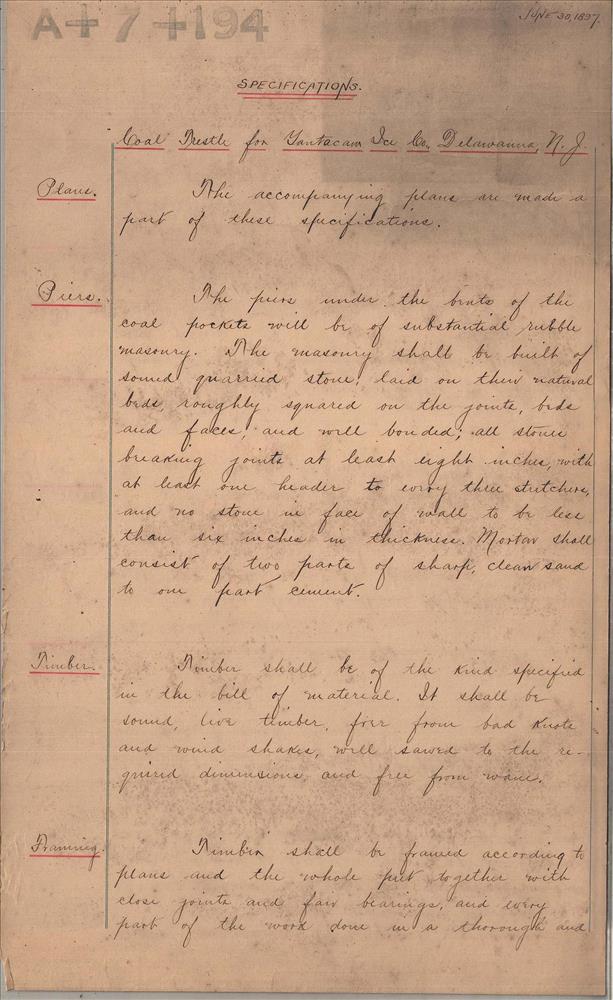 A+7+194
JUNE 30, 1897.
SPECIFICATIONS.
Coal Trestle for Yantacaw Ice Co. Delawanna, N. J.
Plans.
The accompanying plans are made a
part of these specifications.
Piers.
The piers under the bents of the
coal pockets will be of substantial rubble
masonry. The masonry shall be built of
sound quarried stone, laid on their natural
beds, roughly squared on the joints, beds
and faces, and well bonded; all stones
breaking joints at least eight inches, with
at least one header to every three stretchers,
and no stone in face of wall to be less
than six inches in thickness. Mortar shall
consist of two parts of sharp, clean sand
to one part cement.
Timber.
Timber shall be of the kind specified
in the bill of material. It shall be
sound, live timber, free from bad knots
and wind shakes, well sawed to the re-
quired dimensions and free from wane.
Framing.
Timber shall be framed according to
plans and the whole put together with
close joints and fair bearings, and every
part of the work done in a thorough and